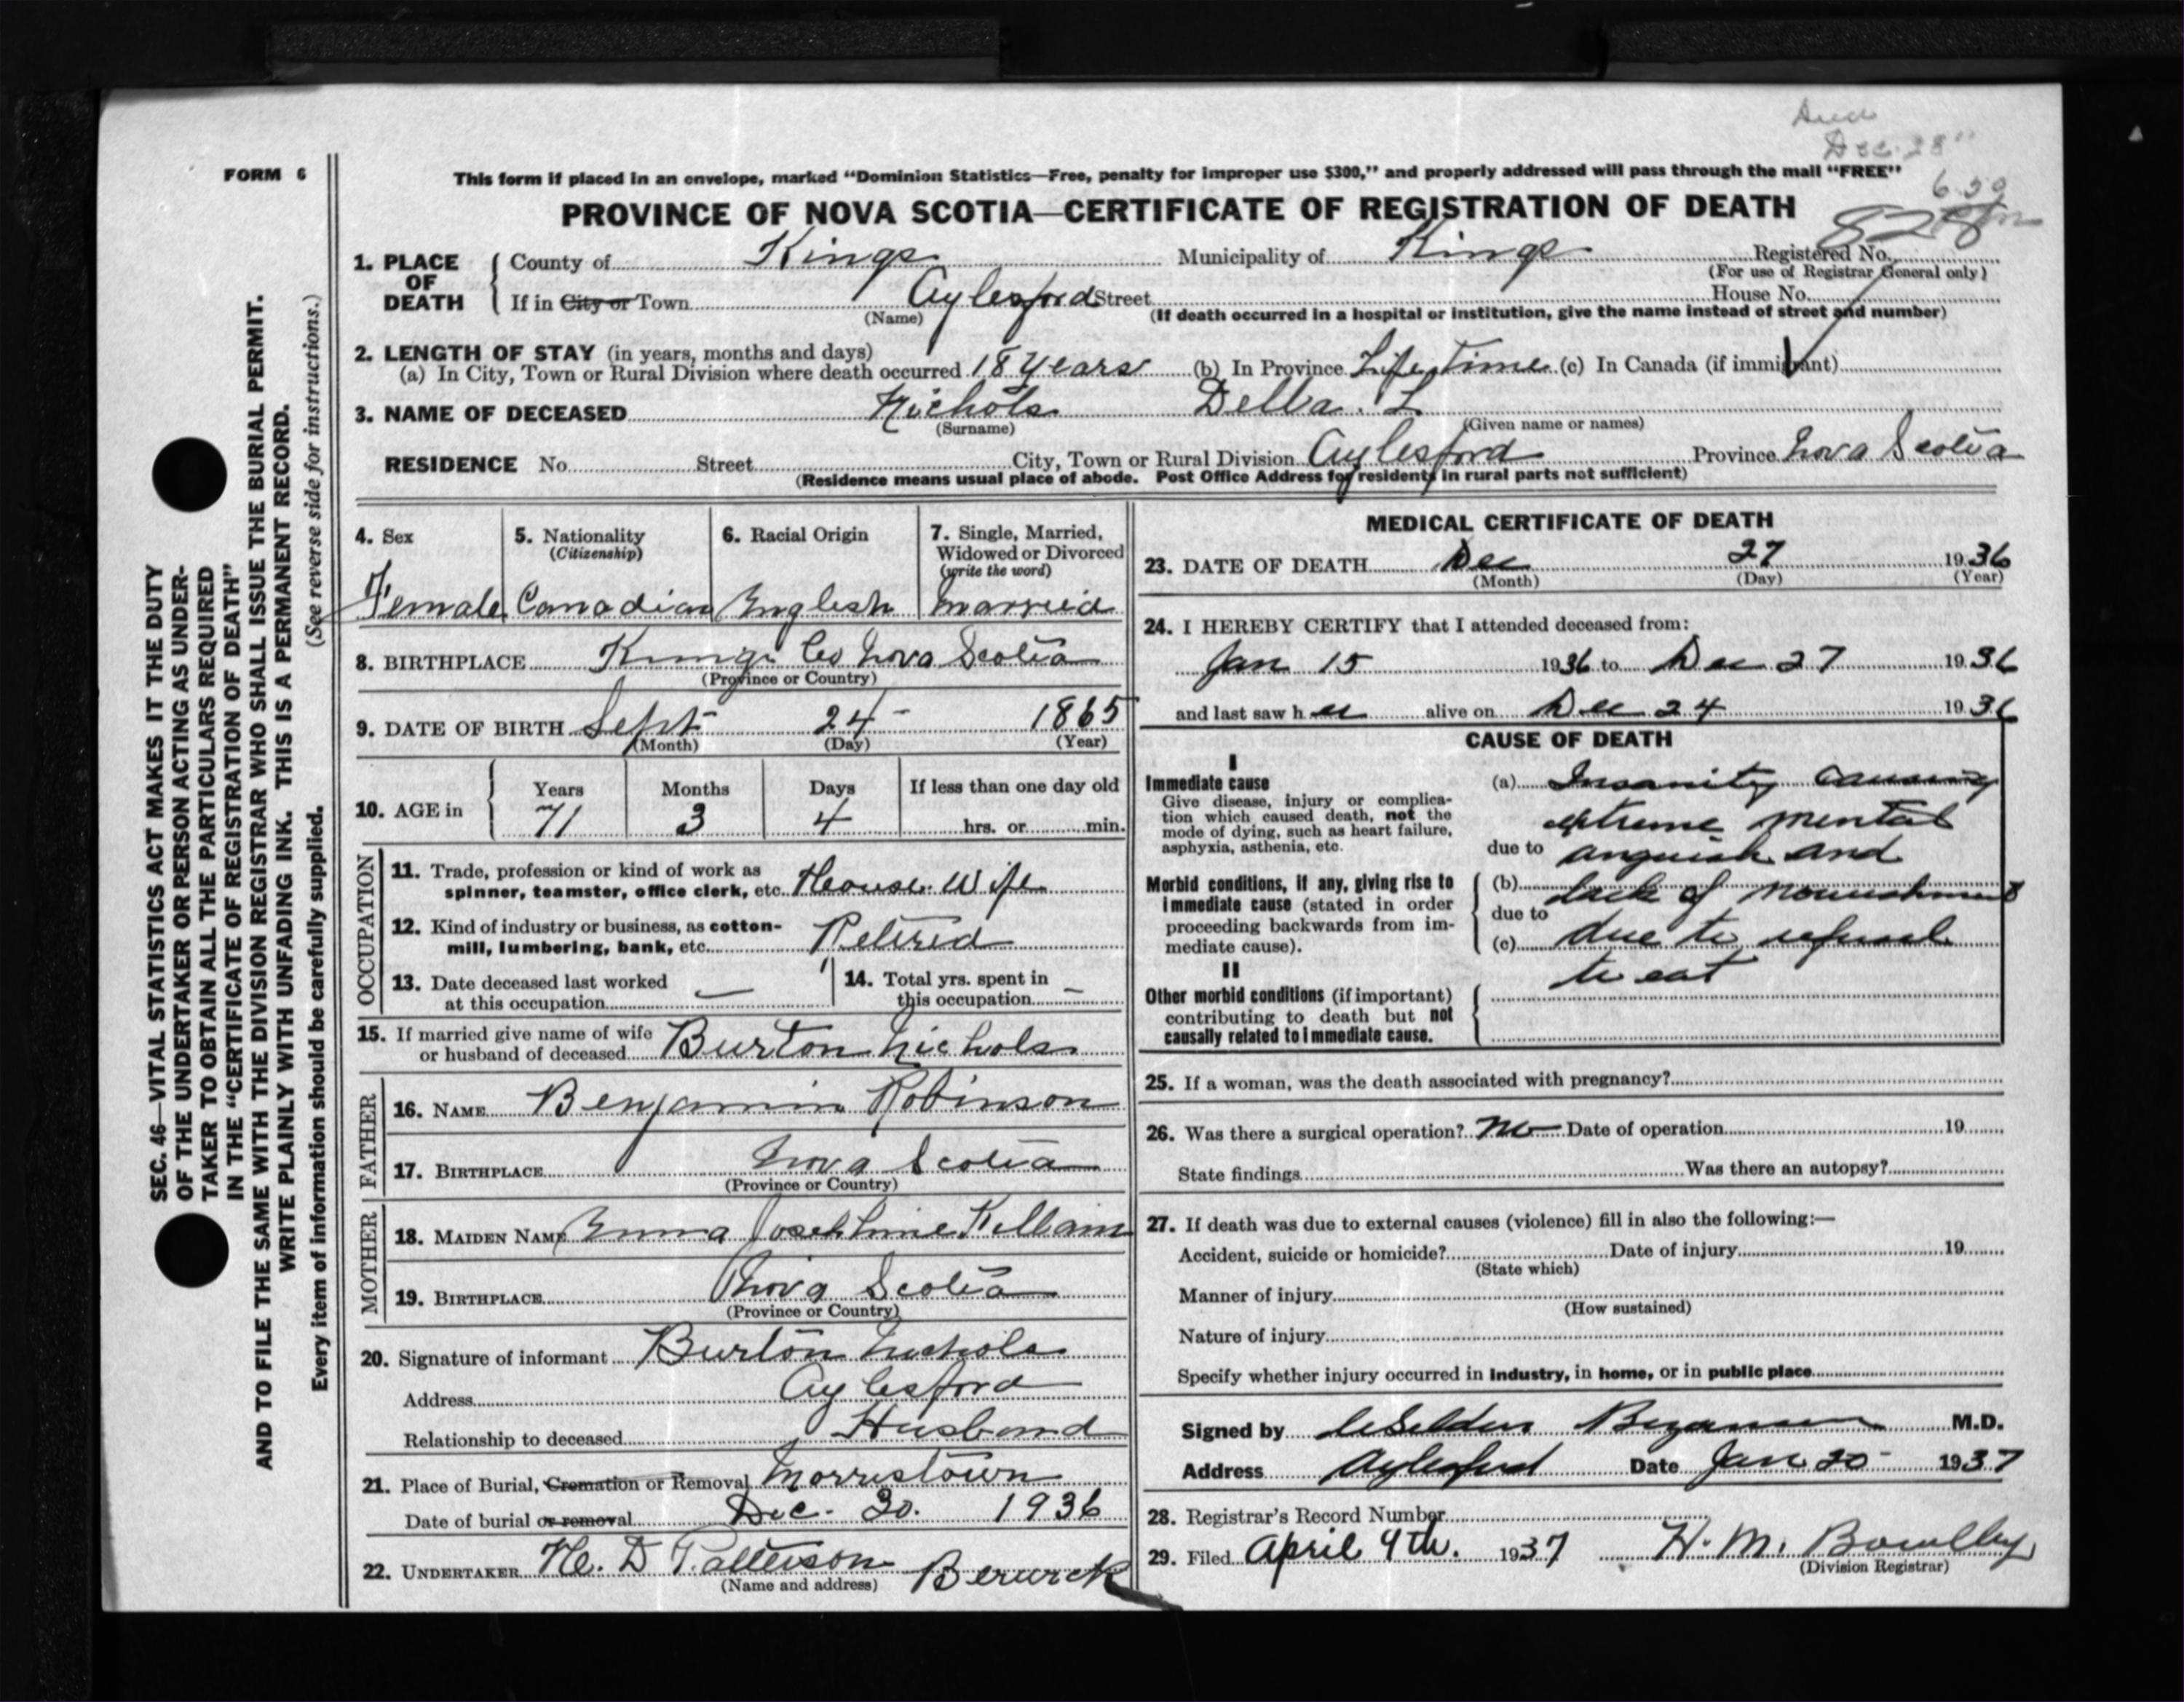 Died
Dec. 28"
FORM 6
This form if placed in an envelope, marked “Dominion Statistics—Free, penalty for improper use $300,” and properly addressed will pass through the mail “FREE”
PROVINCE OF NOVA SCOTIA—CERTIFICATE OF REGISTRATION OF DEATH
1. PLACE OF DEATH County of Kings Municipality of Kings Registered No.
(For use of Registrar General only)
If in City or Town Aylesford Street House No.
(Name) (If death occurred in a hospital or institution, give the name instead of street and number)
2. LENGTH OF STAY (in years, months and days)
(a) In City, Town or Rural Division where death occurred 18 years (b) In Province Life Time (c) In Canada (if immigrant)
3. NAME OF DECEASED Nichols Della. L
(Surname) (Given name or names)
RESIDENCE No. Street City, Town or Rural Division Aylesford Province Nova Scotia
(Residence means usual place of abode. Post Office Address for residents in rural parts not sufficient)
4. Sex Female
5. Nationality (Citizenship) Canadian
6. Racial Origin English
7. Single, Married, Widowed or Divorced (write the word) Married
8. BIRTHPLACE Kings Co Nova Scotia
(Province or Country)
9. DATE OF BIRTH Sept 24 - 1865
(Month) (Day) (Year)
10. AGE in Years 71 Months 3 Days 4 If less than one day old hrs. or min.
OCCUPATION
11. Trade, profession or kind of work as
spinner, teamster, office clerk, etc. House Wife
12. Kind of industry or business, as cotton-
mill, lumbering, bank, etc. Retired
13. Date deceased last worked
at this occupation —
14. Total yrs. spent in
this occupation —
15. If married give name of wife
or husband of deceased Burton Nichols
FATHER
16. NAME Benjamin Robinson
17. BIRTHPLACE Nova Scotia
(Province or Country)
MOTHER
18. MAIDEN NAME Emma Josephine Killam
19. BIRTHPLACE Nova Scotia
(Province or Country)
20. Signature of informant Burton Nichols
Address Aylesford
Relationship to deceased Husband
21. Place of Burial, Cremation or Removal Morristown
Date of burial or removal Dec. 30. 1936
22. UNDERTAKER H. D Patterson Berwick
(Name and address)
MEDICAL CERTIFICATE OF DEATH
23. DATE OF DEATH Dec 27 1936
(Month) (Day) (Year)
24. I HEREBY CERTIFY that I attended deceased from:
Jan 15 1936 to Dec 27 1936
and last saw her alive on Dec 24 1936
CAUSE OF DEATH
I
Immediate cause
Give disease, injury or complica-
tion which caused death, not the
mode of dying, such as heart failure,
asphyxia, asthenia, etc.
Morbid conditions, if any, giving rise to
immediate cause (stated in order
proceeding backwards from im-
mediate cause).
II
Other morbid conditions (if important)
contributing to death but not
causally related to immediate cause.
(a) Insanity causing
extreme mental
due to anguish and
(b) lack of nourishment
due to
(c) due to refusal
to eat
25. If a woman, was the death associated with pregnancy?
26. Was there a surgical operation? No Date of operation 19
State findings Was there an autopsy?
27. If death was due to external causes (violence) fill in also the following:—
Accident, suicide or homicide? Date of injury 19
(State which)
Manner of injury
(How sustained)
Nature of injury
Specify whether injury occurred in industry, in home, or in public place
Signed by M.D.
Address Aylesford Date Jan 20 - 1937
28. Registrar's Record Number
29. Filed April 9th. 1937 H. M.
(Division Registrar)
SEC. 46—VITAL STATISTICS ACT MAKES IT THE DUTY
OF THE UNDERTAKER OR PERSON ACTING AS UNDER-
TAKER TO OBTAIN ALL THE PARTICULARS REQUIRED
IN THE “CERTIFICATE OF REGISTRATION OF DEATH”
AND TO FILE THE SAME WITH THE DIVISION REGISTRAR WHO SHALL ISSUE THE BURIAL PERMIT.
WRITE PLAINLY WITH UNFADING INK. THIS IS A PERMANENT RECORD.
Every item of information should be carefully supplied. (See reverse side for instructions.)